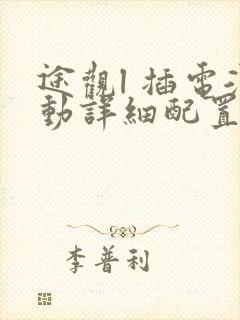 途觀l 插電
動詳細配置
李普利